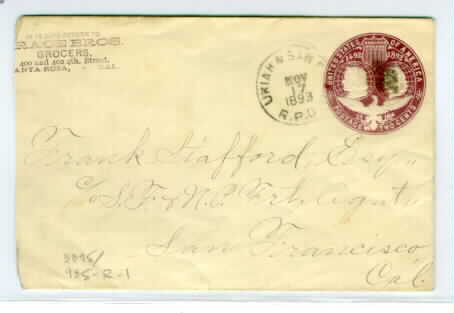 RACE BROS.
GROCERS.
400 and 402 4th. Street.
SANTA ROSA, CAL.
UKIAH & SAN F
NOV
17
1893
R.P.O.
UNITED STATES OF AMERICA
1492 1892
POSTAGE TWO CENTS
Frank Stafford, Esq.,
c/o S.F. & N.P. Frt. Agent
San Francisco
Cal.
925-R-1